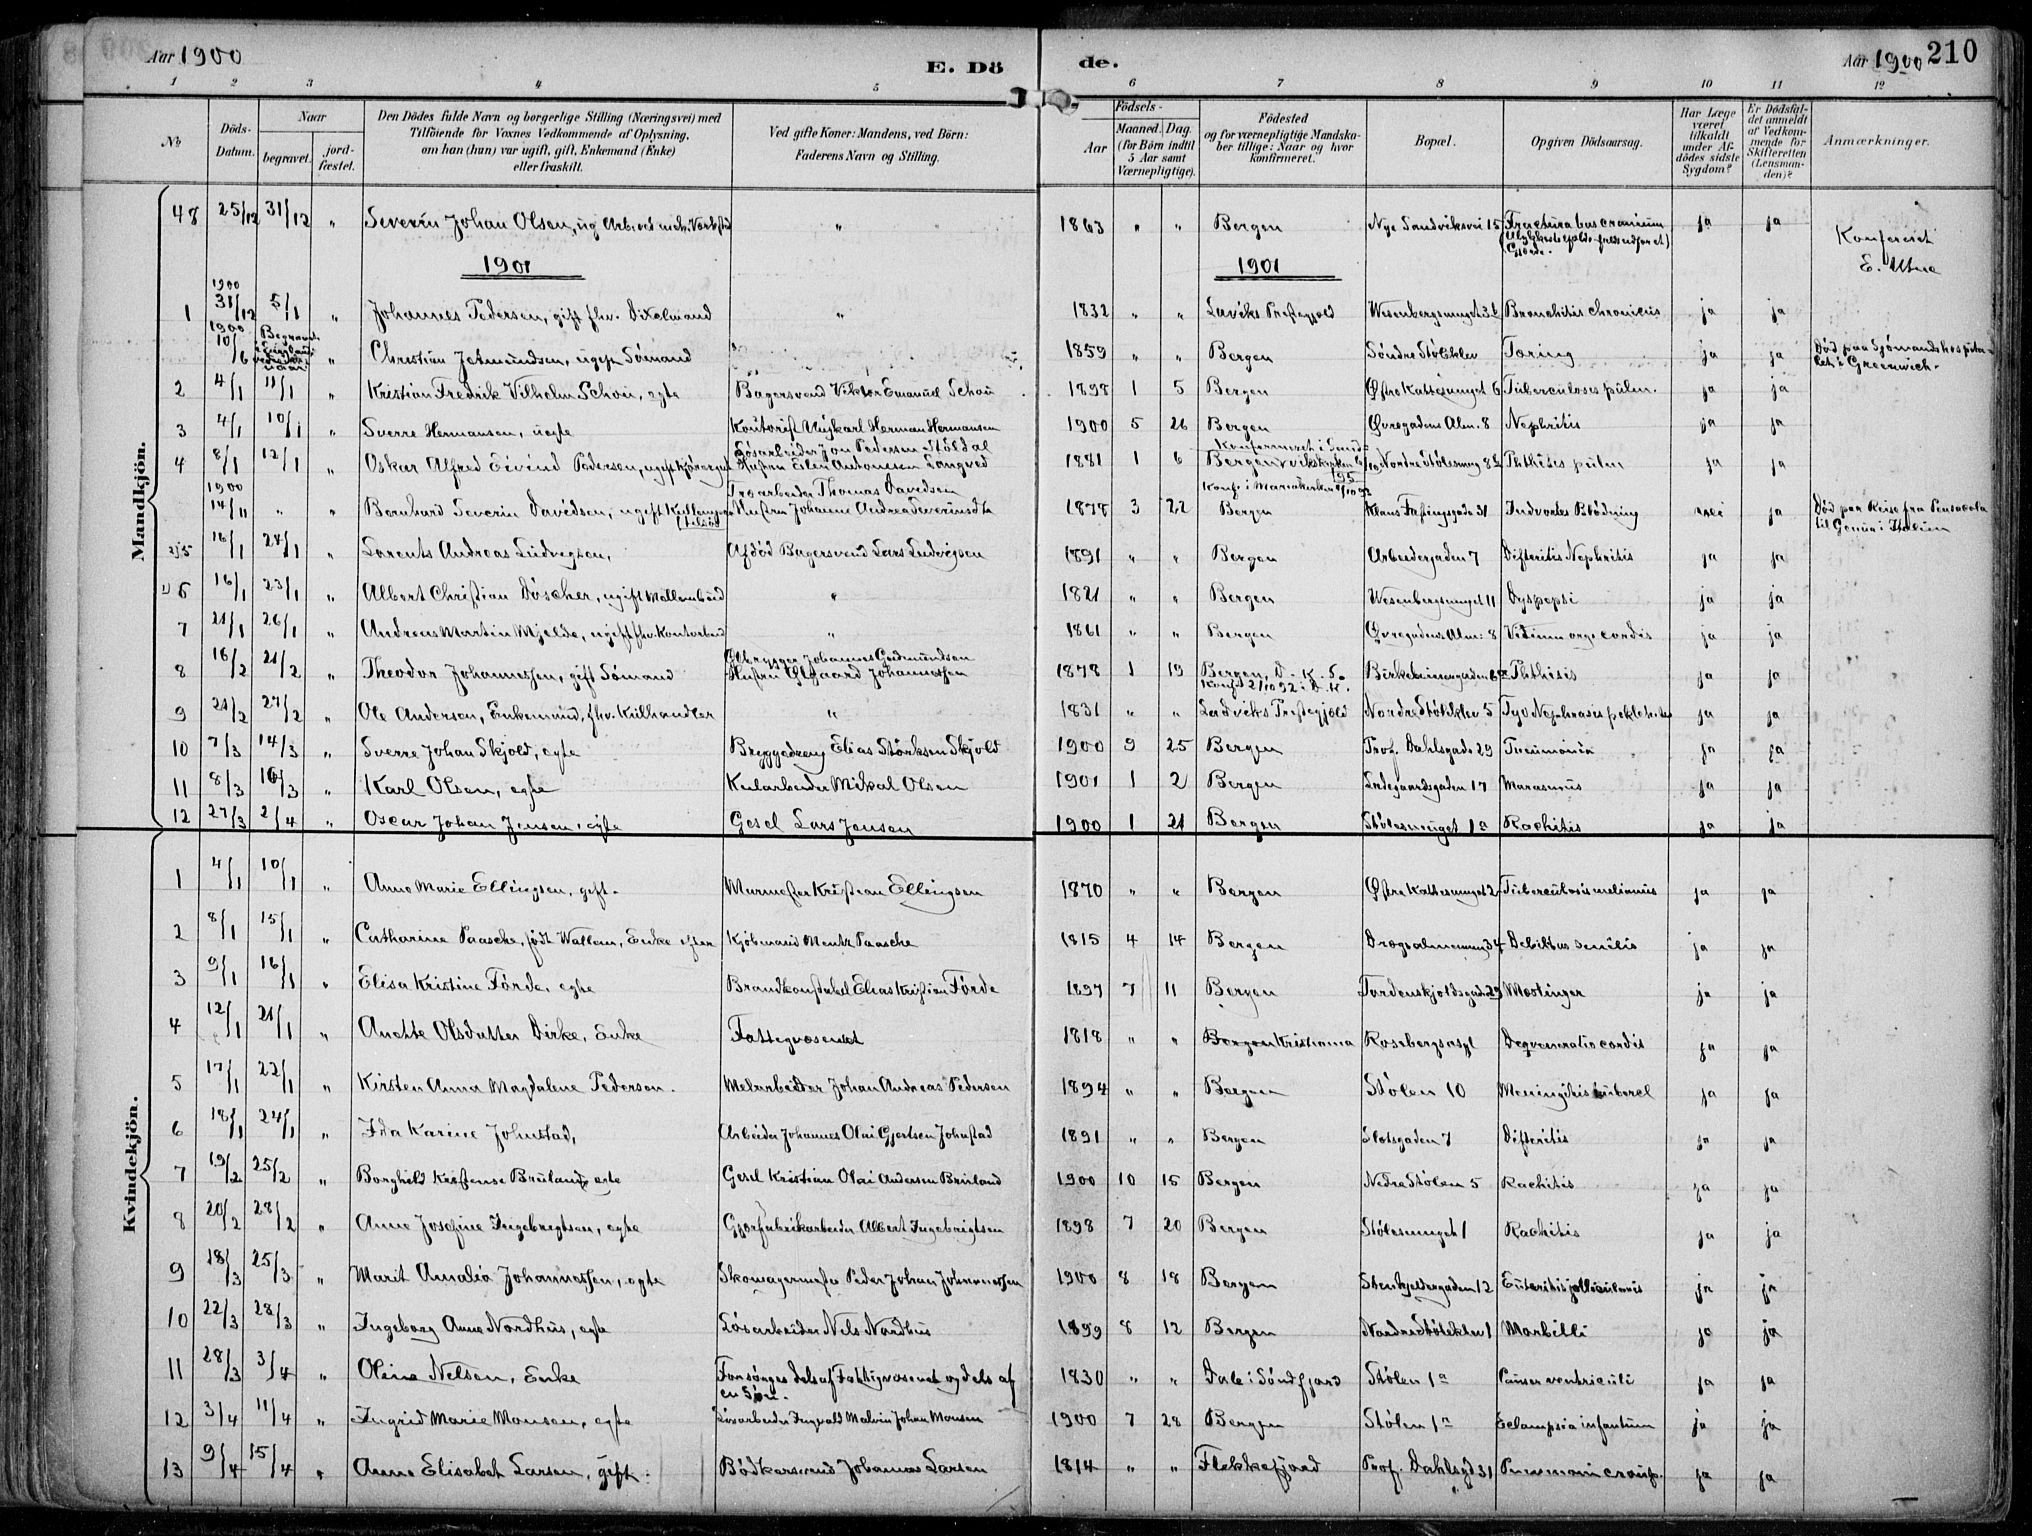 Aar 1900 E. Dö de. Aar 1900 210
1 2 3 4 5 6 7 8 9 10 11 12
№ Döds-Datum. Naar begravet. jordfæstet. Den Dödes fulde Navn og borgerlige Stilling (Næringsvei) med Tilföiende for Voxnes Vedkommende af Oplysning, om han (hun) var ugift, gift, Enkemand (Enke) eller fraskilt. Ved gifte Koner: Mandens, ved Börn: Faderens Navn og Stilling. Födsels- Aar Maaned. Dag. (for Börn indtil 5 Aar samt Værnepligtige). Födested og for værnepligtige Mandskaber tillige: Naar og hvor konfirmeret. Bopæl. Opgiven Dödsaarsag. Har Læge været tilkaldt under Afdödes sidste Sygdom? Er Dödsfaldet anmeldt af Vedkommende for Skifteretten (Lensmanden)? Anmærkninger.
Mandkjön.
48 25/12 31/12 " Severin Johan Olsen, ug Arb. ved mek. Værksted " 1863 " " Bergen Nye Sandviksvei 15 Fractura bas cranium ja ja Konfereret
E. Utne
1901 1901
1 1900 31/12 5/1 " Johannes Pedersen, gift fhv. Dixelmand " 1832 " " Laviks Prestegjeld Wesenbergsmuget 3b Bronchitis chronicus ja ja
1900 10/6 " Christian Jetmundsen, ugift Sömand " 1859 " " Bergen Söndre Stöleklev Tæring ja ja Död paa Sjömandshospitalet i Greenwich.
2 4/1 11/1 " Kristian Fredrik Vilhelm Schou, egte Bagersvend Viktor Emanuel Schou 1898 1 5 Bergen Østre Kattesmuget 6 Tuberculoses pulm. ja ja
3 4/1 10/1 " Sverre Hermansen, uegte Kontorist Nygkarl Herman Hermansen 1900 5 26 Bergen Øvregadens Alm. 8 Nephritis ja ja
4 8/1 12/1 " Oskar Alfred Eivind Pedersen, ugift Lösarbeider Jon Pedersen Stöldal Hustru Elen Antonesen Langved 1881 1 6 Bergen Nordre Stölesmug 8b Phthisis pulm ja ja
1900 14/11 " " Bernhard Severin Davidsen, ugift Træarbeider Thomas Davidsen Hustru Johanne Andrea Severinsdtr 1878 3 22 Konf. i Mariakirken 2/10 92 Bergen Klaus Fastingsgade 31 Indvortes Blödning nei ja Död paa Reise fra Pensacola til Genua i Italien
5 16/1 24/1 " Lorents Andreas Ludvigsen, Afdöd Bagersvend Lars Ludvigsen 1891 " " Bergen Arbeidergaden 7 Difteritis Nephritis ja ja
6 16/1 23/1 " Albert Christian Döscher, ugift " 1821 " " Bergen Wesenbergsmuget 11 Dyspepsi ja ja
7 21/1 26/1 " Andreas Martin Mjelde, ugift fhv. Kontorbud " 1861 " " Bergen Øvregadens Alm: 8 Vitium org. cordis ja ja
8 16/2 21/2 " Theodor Johannessen, gift Sömand Ølbrygger Johannes Gudmundsen Hustru Ølegaard Johannessen 1878 1 19 Bergen, D. K. S. Konf 2/10 92 i D. K. Birkebeinergaden 6 Phthisis ja ja
9 21/2 27/2 " Ole Andersen, Enkemand, fhv. Kulhandler " 1831 " " Ladviks Prestegjeld Nordre Stöleklev 5 ja ja
10 7/3 14/3 " Sverre Johan Skjold, egte Bryggedreng Elias Störksen Skjold 1900 9 25 Bergen Prof. Dahlsgade 29 Pneumonia ja ja
11 8/3 16/3 " Karl Olsen, egte Kularbeider Mikal Olsen 1901 1 2 Bergen Ladegaardsgaden 17 Marasmus ja ja
12 27/3 2/4 " Oscar Johan Jensen, egte Gesel Lars Jensen 1900 1 21 Bergen Stölesmuget 1a Rachitis ja ja
Kvindekjön.
1 4/1 10/1 " Anne Marie Ellingsen, gift. Murmester Kristian Ellingsen 1870 " " Bergen Østre Kattesmuget 2 ja ja
2 8/1 15/1 " Catharine Paasche, födt Wallem, Enke efter Kjöbmand Mentz Paasche 1815 4 14 Bergen Dræggealmenning 34 Debilitas senilis ja ja
3 9/1 16/1 " Elisa Kristine Förde, egte Brandkonstabel Elias Kristian Förde 1897 7 11 Bergen Tordenskjoldsgade 29 Mæslinger ja ja
4 12/1 21/1 " Anette Olsdatter Dirke, Enke Fattigvæsenet 1818 " " Bergen Kristiania Rosebergsasyl Degeneratio cordis ja ja
5 17/1 22/1 " Kirsten Anna Magdalene Pedersen. Melarbeider Johan Andreas Pedersen 1894 " " Bergen Stölen 10 Meningitis tubercl ja ja
6 18/1 24/1 " Ida Karine Johnstad, Arbeider Johannes Olai Gjertsen Johnstad 1891 " " Bergen Slotsgaden 7 Difteritis ja ja
7 19/2 25/2 " Borghild Kristense Bruland, egte Gesel Kristian Olai Andersen Bruland 1900 10 15 Bergen Nedre Stölen 5 Rachitis ja ja
8 20/2 28/2 " Anne Josefine Ingebrigtsen, egte Gjærfabrikarbeider Albert Ingebrigtsen 1898 7 20 Bergen Stölesmuget 1 Rachitis ja ja
9 18/3 25/3 " Marit Amalia Johannessen, egte Skomagermester Peder Johan Johannessen 1900 8 18 Bergen Stenkjeldergaden 12 Enteritis follicularis ja ja
10 22/3 28/3 " Ingeborg Anne Nordhus, egte Lösarbeider Nels Nordhus 1899 8 12 Bergen Nordre Stöleklev 1 Morbilli ja ja
11 28/3 3/4 " Oline Nelsen, Enke Forsörges dels af Fattigvæsenet og dels af en Sön. 1830 " " Dale i Söndfjord Stölen 1a Cancer ventriculi ja ja
12 3/4 11/4 " Ingrid Marie Monsen, egte Lösarbeider Ingvald Malvin Johan Monsen 1900 7 28 Bergen Stölen 1a Eclampsia infantum ja ja
13 9/4 15/4 " Anne Elisabet Larsen, gift. Bödkersvend Johannes Larsen 1814 " " Flekkefjord Prof. Dahlsgd 31 Pneumoni croup. ja ja